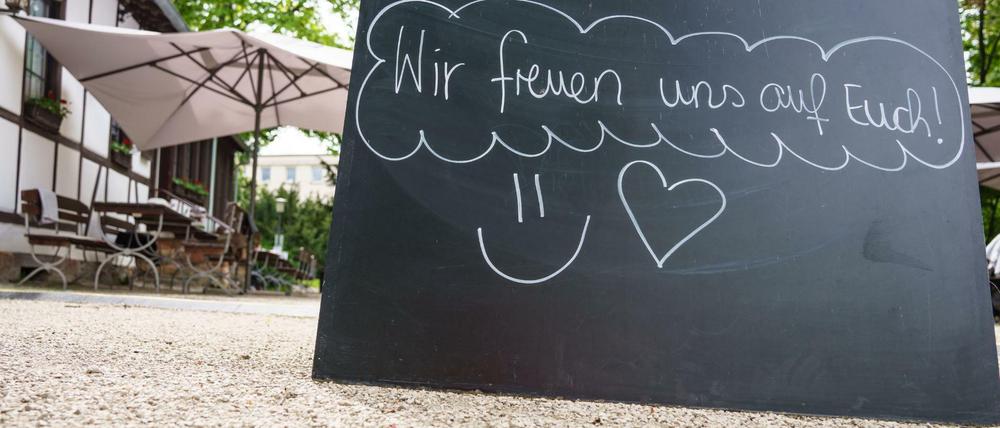 Wir freuen uns auf Euch!